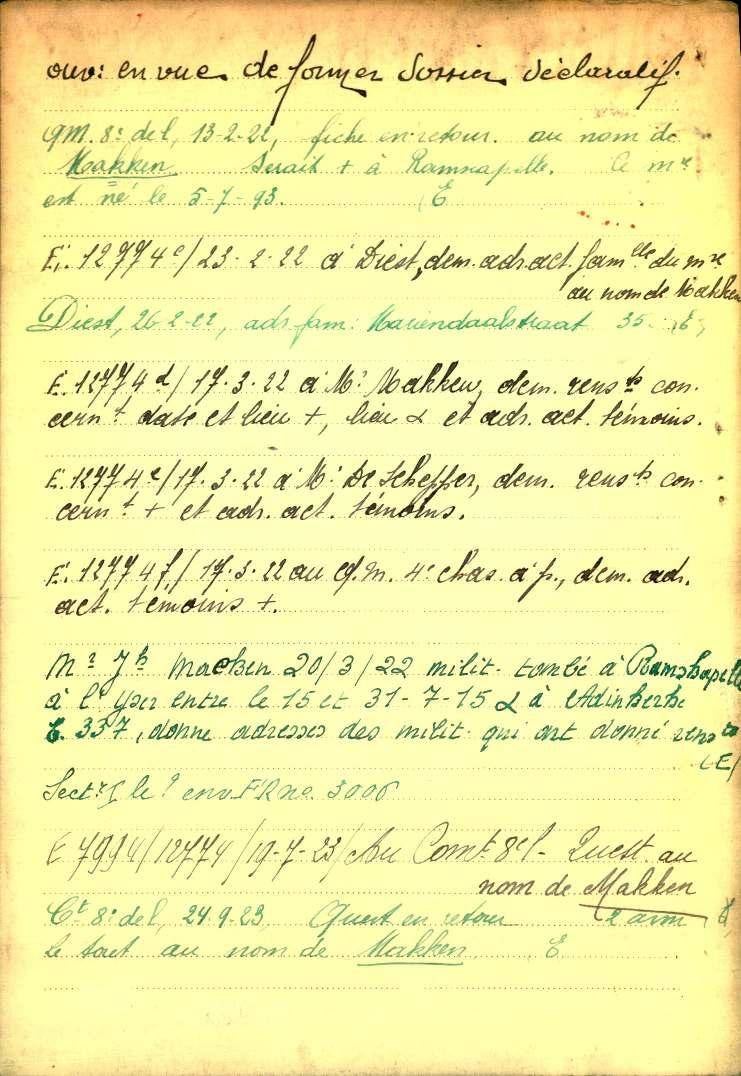 ouv: en vue de former dossier déclaratif.
QM. 8e del, 13-2-22, fiche en retour. au nom de
Makken. Serait + à Ramscapelle. Ce mre
est né le 5-7-93. E
E. 12774c/23-2-22 à Diest, dem. adr. act. famlle du mre
au nom de Makken
Diest, 26-2-22, adr. fam: Mariendaalstraat 35. E,
E. 12774d/17.3.22 à Mr Makken, dem. rensts con-
cernt date et lieu +, lieu et adr. act. témoins.
E. 12774e/17.3.22 à Mr De Scheffer, dem. rensts con-
cernt + et adr. act. témoins.
E. 12774f/17.3.22 au Q.M. 4e chas. à p., dem. adr.
act. témoins +.
Mr Jh Macken 20/3/22 milit. tombé à Ramskapelle
à l'Yser entre le 15 et 31-7-15 à Adinkerke
E. 337, donne adresses des milit. qui ont donné rensts
(E)
Sect. I le env. FR no. 3006
E 7994/12774/19-7-23/Au Comt 8e Quest. au
nom de Makken
Ct 8e del, 24.9.23, Quest en retour
le tout au nom de Makken E